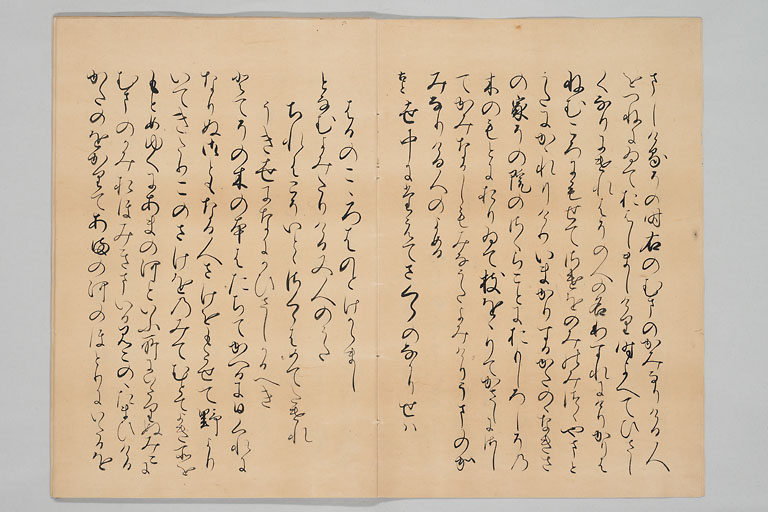 さしけるその時右のむまのかみなりける人
をつねにゐておはしましけり時世へてひさし
くなりにけれはその人の名わすれにけりかりは
ねむころにもせてさけをのみのみつゝやまと
うたにかゝれりけりいまかりするかたのゝなきさ
の家その院のさくらことにおもしろしその
木のもとにおりゐて枝をゝりてかさしにさし
てかみなかしもみなうたよみけりうまのか
みなりける人のよめる
世中にたえてさくらのなかりせは
はるのこゝろはのとけからまし
となむよみたりける又人のうた
ちれはこそいとゝさくらはめてたけれ
うき世になにかひさしかるへき
とてその木の本はたちてかへるに日くれに
なりぬ御ともなる人さけをもたせて野より
いてきたりこのさけをのみてむとてよき所を
もとめゆくにあまの河といふ所にいたりぬみこに
むまのかみおほみきまいるみこのゝたまひける
かたのをかりてあまの河のほとりにいたるを